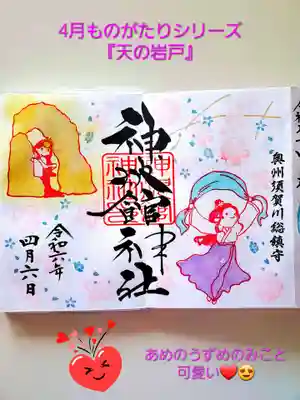 4月ものがたりシリーズ
『天の岩戸』
奥州須賀川総鎮守
神炊館神社
令和六年
四月六日
あめのうずめのみこと
可愛い❤️😍